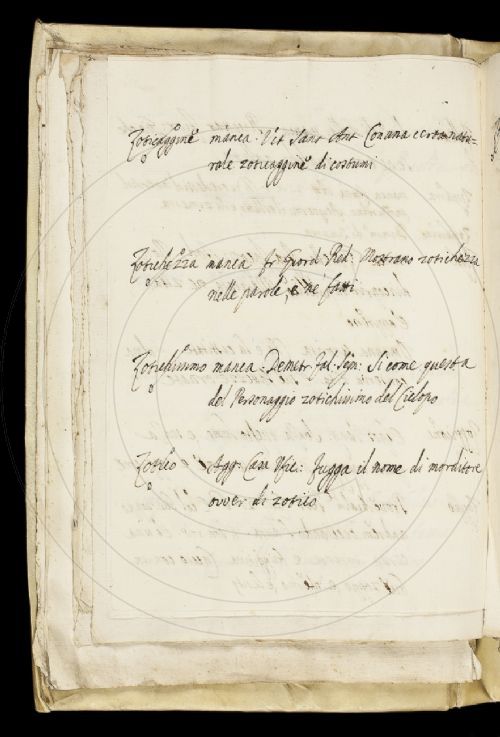 Zoticaggine manca. Vit Sant Ant Con una certa natu=
rale zoticaggine di costumi
Zotichezza manca fr Giord: Red: Mostrano zotichezza
nelle parole, e ne fatti
Zotichissimo manca: Demetr fal: Segn: Si come questa
del Personaggio zotichissimo del Ciclopo
Zotico Agg: Casa Ufic: fugga il nome di morditore
ovver di zotico